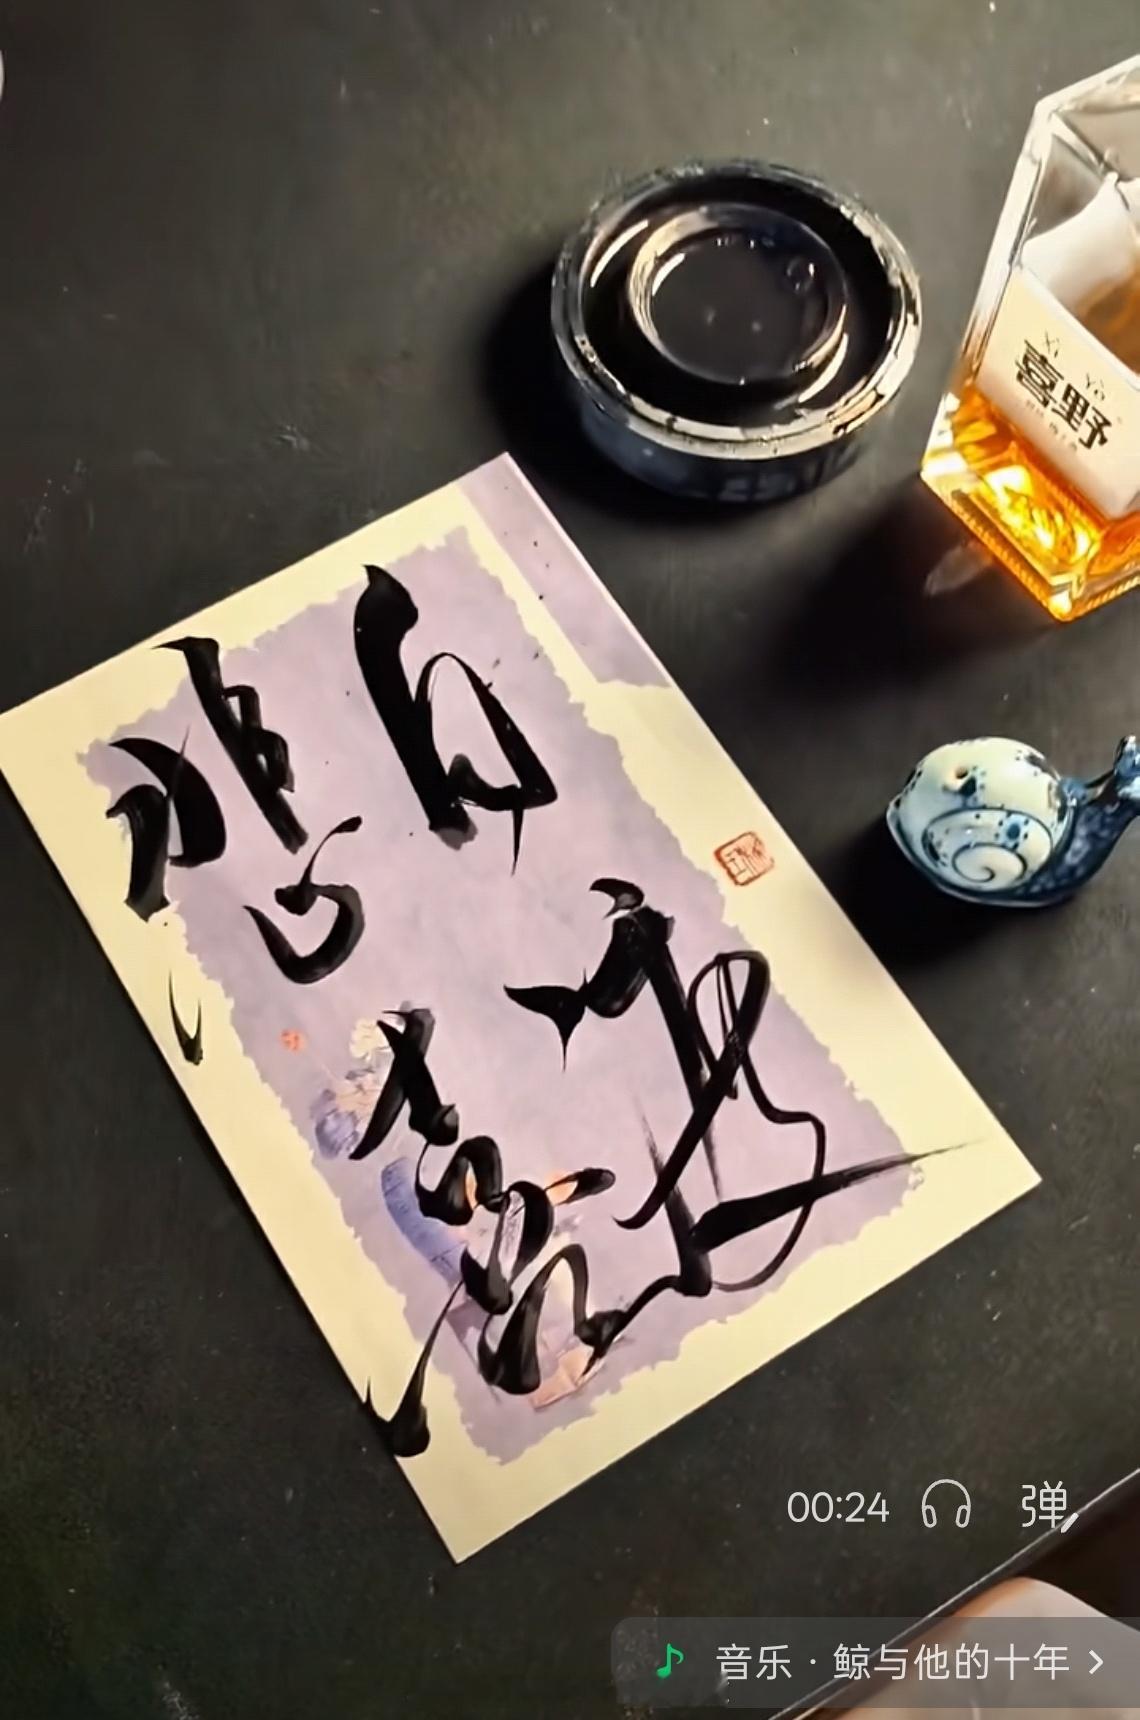 Xǐ Yě
喜野
自渡
悲喜
00:24 弹
音乐 · 鲸与他的十年